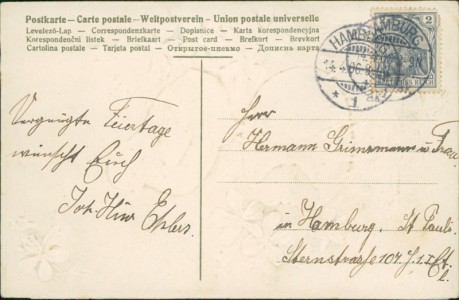 Postkarte – Carte postale – Weltpostverein – Union postale universelle
Levelező-Lap — Correspondenzkarte — Dopisnice — Karta korespondencyjna
Korespondenční lístek — Briefkaart — Post card — Brefkort — Brevkort
Cartolina postale — Tarjeta postal — Открытое письмо — Дописна карта
HAMBURG
1
2
Vergnügte Feiertage
wünscht Euch
Joh. Hinr. Ehlers.
Herr
Hermann Grimmann u Frau
in Hamburg. St Pauli.
Sternstraße 107. J. I. Et.